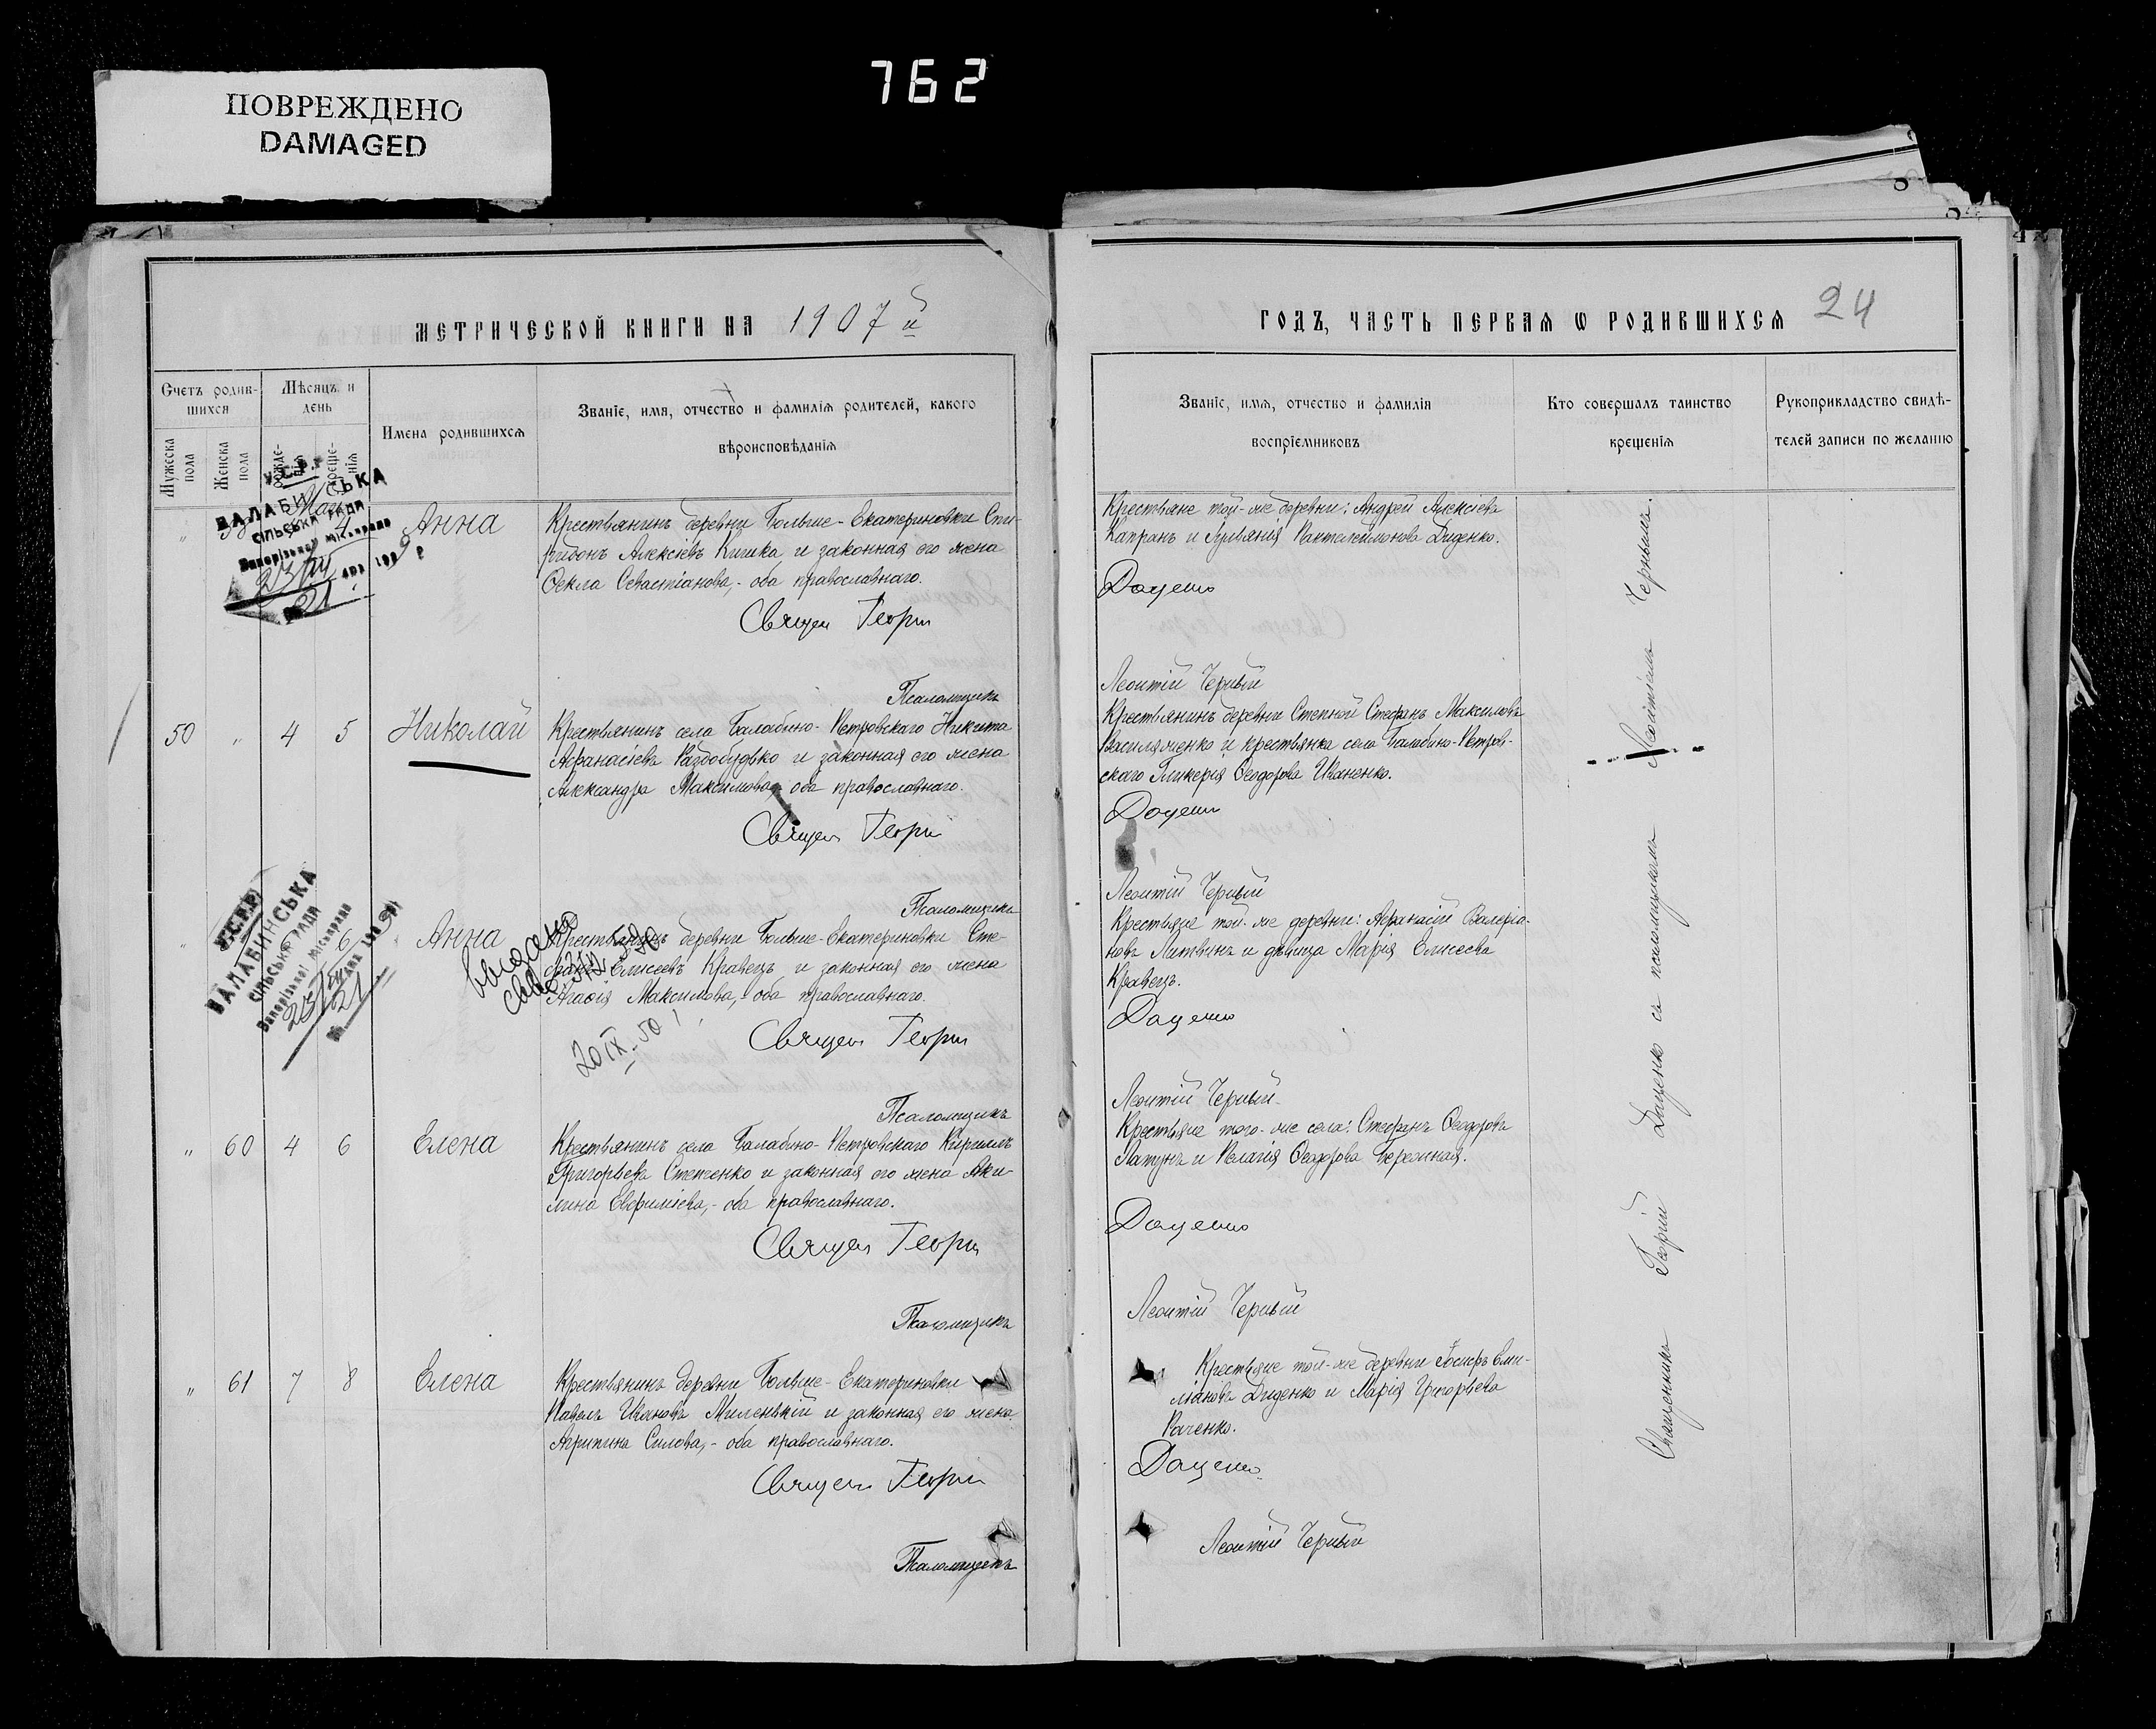 762
ПОВРЕЖДЕНО
DAMAGED
МЕТРИЧЕСКОЙ КНИГИ НА 1907 й
Счетъ родив-
шихся
Мѣсяцъ и
день
Мужеска
пола
Женска
пола
Имена родившихся
Званіе, имя, отчество и фамилія родителей, какого
вѣроисповѣданія
У.С.Р.Р
БАЛАБИНСЬКА
СІЛЬСЬКА РАДА
4
Анна
Крестьянинъ деревни Больше-Екатериновки Спи-
ридонъ Алексіевъ Кишка и законная его жена
Ѳекла Севастіанова,- оба православнаго.
Священ Георгій
Псаломщикъ
50 " 4 5 Николай
Крестьянинъ села Балабино-Петровскаго Никита
Аѳанасіевъ Раздобудько и законная его жена
Александра Максимова, оба православнаго.
Священ Георгій
Псаломщикъ
У.С.Р.Р
БАЛАБИНСЬКА
СІЛЬСЬКА РАДА
6
Анна
Крестьянинъ деревни Больше-Екатериновки Сте-
фанъ Елисеевъ Кравецъ и законная его жена
Агаѳія Максимова,- оба православнаго.
20 IX 50
Священ Георгій
Псаломщикъ
" 60 4 6 Елена
Крестьянинъ села Балабино-Петровскаго Кириллъ
Григорьевъ Степченко и законная его жена Аки-
лина Евфиміева,- оба православнаго.
Священ Георгій
Псаломщикъ
" 61 7 8 Елена
Крестьянинъ деревни Больше-Екатериновки
Павелъ Ивановъ Миленькій и законная его жена
Агрипина Силова,- оба православнаго.
Священ Георгій
Псаломщикъ
ГОДЪ, ЧАСТЬ ПЕРВАЯ Ѡ РОДИВШИХСЯ 24
Званіе, имя, отчество и фамилія
воспріемниковъ
Кто совершалъ таинство
крещенія
Рукоприкладство свидѣ-
телей записи по желанію
Крестьяне той-же деревни: Андрей Алексіевъ
Капранъ и Іуліанія Пантелеймонова Диденко.
Даценко
Леонтій Черный
Крестьянинъ деревни Степной Стефанъ Максимовъ
Василяченко и крестьянка села Балабино-Петров-
скаго Гликерія Ѳеодорова Иваненко.
Даценко
Леонтій Черный
Крестьяне той-же деревни: Аѳанасій Валеріа-
новъ Литвинъ и дѣвица Марія Елисеева
Кравецъ.
Даценко
Леонтій Черный
Крестьяне того-же села: Стефанъ Ѳеодоровъ
Лапунъ и Пелагія Ѳеодорова Бережная.
Даценко
Леонтій Черный
Крестьяне той-же деревни Іосифъ Еми-
ліановъ Диденко и Марія Григорьева
Раченко.
Даценко
Леонтій Черный
Священникъ Георгій Даценко съ псаломщикомъ Леонтіемъ Чернымъ.